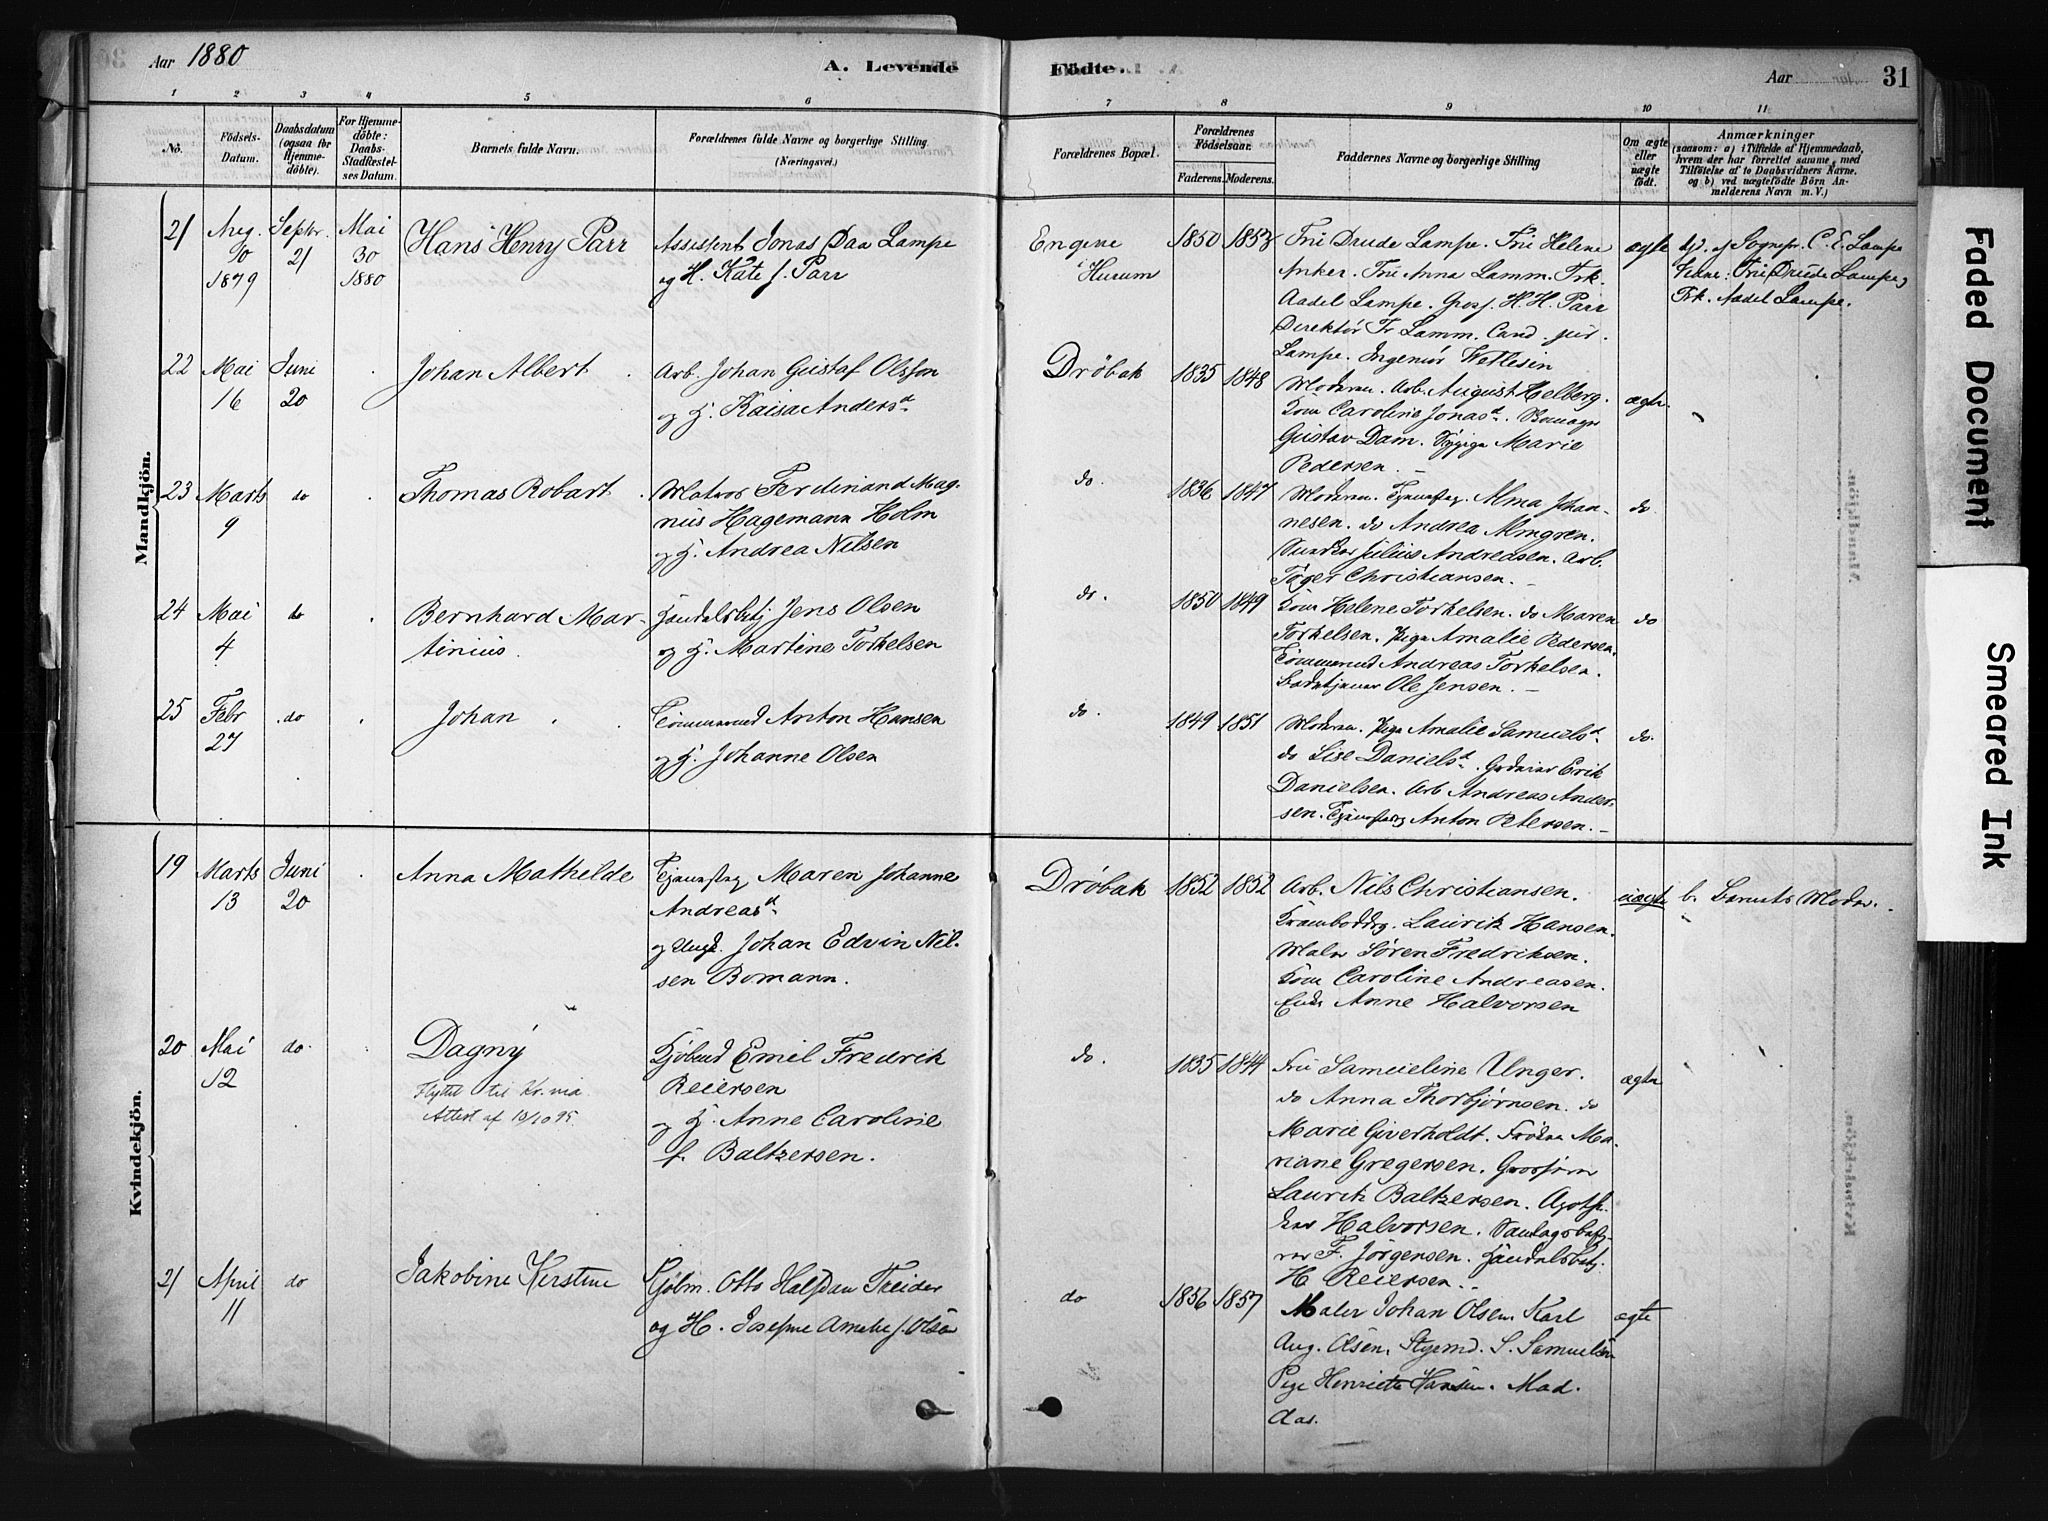 Aar 1880
A. Levende
Födte.
Aar
31
1 2 3 4 5 6 7 8 9 10 11
No.
Födsels-
Datum.
Daabsdatum
(ogsaa for
Hjemme-
döbte).
For Hjemme-
döbte:
Daabs-
Stadfæstel-
ses Datum.
Barnets fulde Navn.
Forældrenes fulde Navne og borgerlige Stilling
(Næringsvei.)
Forældrenes Bopæl.
Forældrenes
Födselsaar.
Faderens. Moderens.
Faddernes Navne og borgerlige Stilling
Om ægte
eller
uægte
födt.
Anmærkninger
(saasom: a) i Tilfælde af Hjemmedaab,
hvem der har forrettet samme, med
Tilföielse af to Daabsvidners Navne.
og b) ved uægtefödte Börn An-
melderens Navn m. V.)
Mandkjön.
21
Aug.
90
1879
Septbr.
21
Mai
30
1880
Hans Henry Parr
Assistent Jonas Daa Lampe
og H. Kate f. Parr
Engene
i Hurum
1850 1853
Fru Drude Lampe. Fru Helene
Anker. Fru Anna Lamm. Frk.
Aadel Lampe. Gross. H. H. Parr
Direktör Fr Lamm. Cand. jur.
Lampe. Ingeniör Wetlesen
ægte
hjd. af Sognepr. C. E. Lampe
Vidne: Fru Drude Lampe,
Frk. Aadel Lampe.
22
Mai
16
Juni
20
Johan Albert
Arb. Johan Gustaf Olsson
og H. Kaisa Andersd.
Dröbak
1835 1848
Moderen. Arb. August Helberg.
Kone Caroline Jonasd.
Gustav Dam. Pige Marie
Pedersen. –
ægte.
23
Marts
9
do
Thomas Robart
Matros Ferdinand Mag-
nus Hagemann Holm
og H. Andrea Nilsen
do.
1836 1847
Moderen. Tjenestep. Alma Johan-
nesen. do Andrea Almgren.
Julius Andreasen. Arb.
Töger Christiansen. –
do.
24
Mai
4
do
Bernhard Mar-
tinius.
Handelsbetj Jens Olsen
og H. Martine Torkelsen
do.
1850 1849
Kone Helene Torkelsen. do Maren
Torkelsen. Pige Amalie Pedersen.
Tömmermd Andreas Torkelsen.
Ole Jensen. –
do
25
Febr
27
do
Johan
Tömmermd Anton Hansen
og H. Johanne Olsen
do.
1849 1851
Moderen. Pige Amalie Samuelsd.
do Lise Danielsd. Erik
Danielsen. Arb Andreas Ander-
sen. Anton Petersen. –
do.
Kvindekjön.
19
Marts
13
Juni
20
Anna Mathilde
Tjenestep Maren Johanne
Andreasd.
og Ungk. Johan Edvin Nil-
sen Bomann.
Dröbak
1852 1852
Arb. Nils Christiansen.
Laurik Hansen.
Maler Sören Fredriksen.
Kone Caroline Andreasen.
Enke Anne Halvorsen
uægte
b. Barnets Moder.
20
Mai
12
do.
Dagny
Flyttet til Kr.nia
Attest af 10/10 95
Kjöbmd Emil Fredrik
Reiersen
og H. Anne Caroline
f. Baltzersen.
do.
1835 1844
Fru Samueline Unger.
do Anna Thorbjörnsen. do
Marie Giverholdt. Fröken Ma-
riane Gregersen. Grosserer
Laurik Baltzersen. Apothe-
ker Halvorsen.
F. Jörgensen. Handelsbetj.
H. Reiersen. –
ægte
21
April
11
do
Jakobine Kerstine
Kjöbm. Otto Halfdan Treider
og H. Josefine Amalie f. Olsen
do
1856 1857
Maler Johan Olsen, Karl
Aug. Olsen, Styrmd. S. Samuelsen
Pige Henriette Hansen. Mad.
Aas.
ægte
Faded Document
Smeared Ink